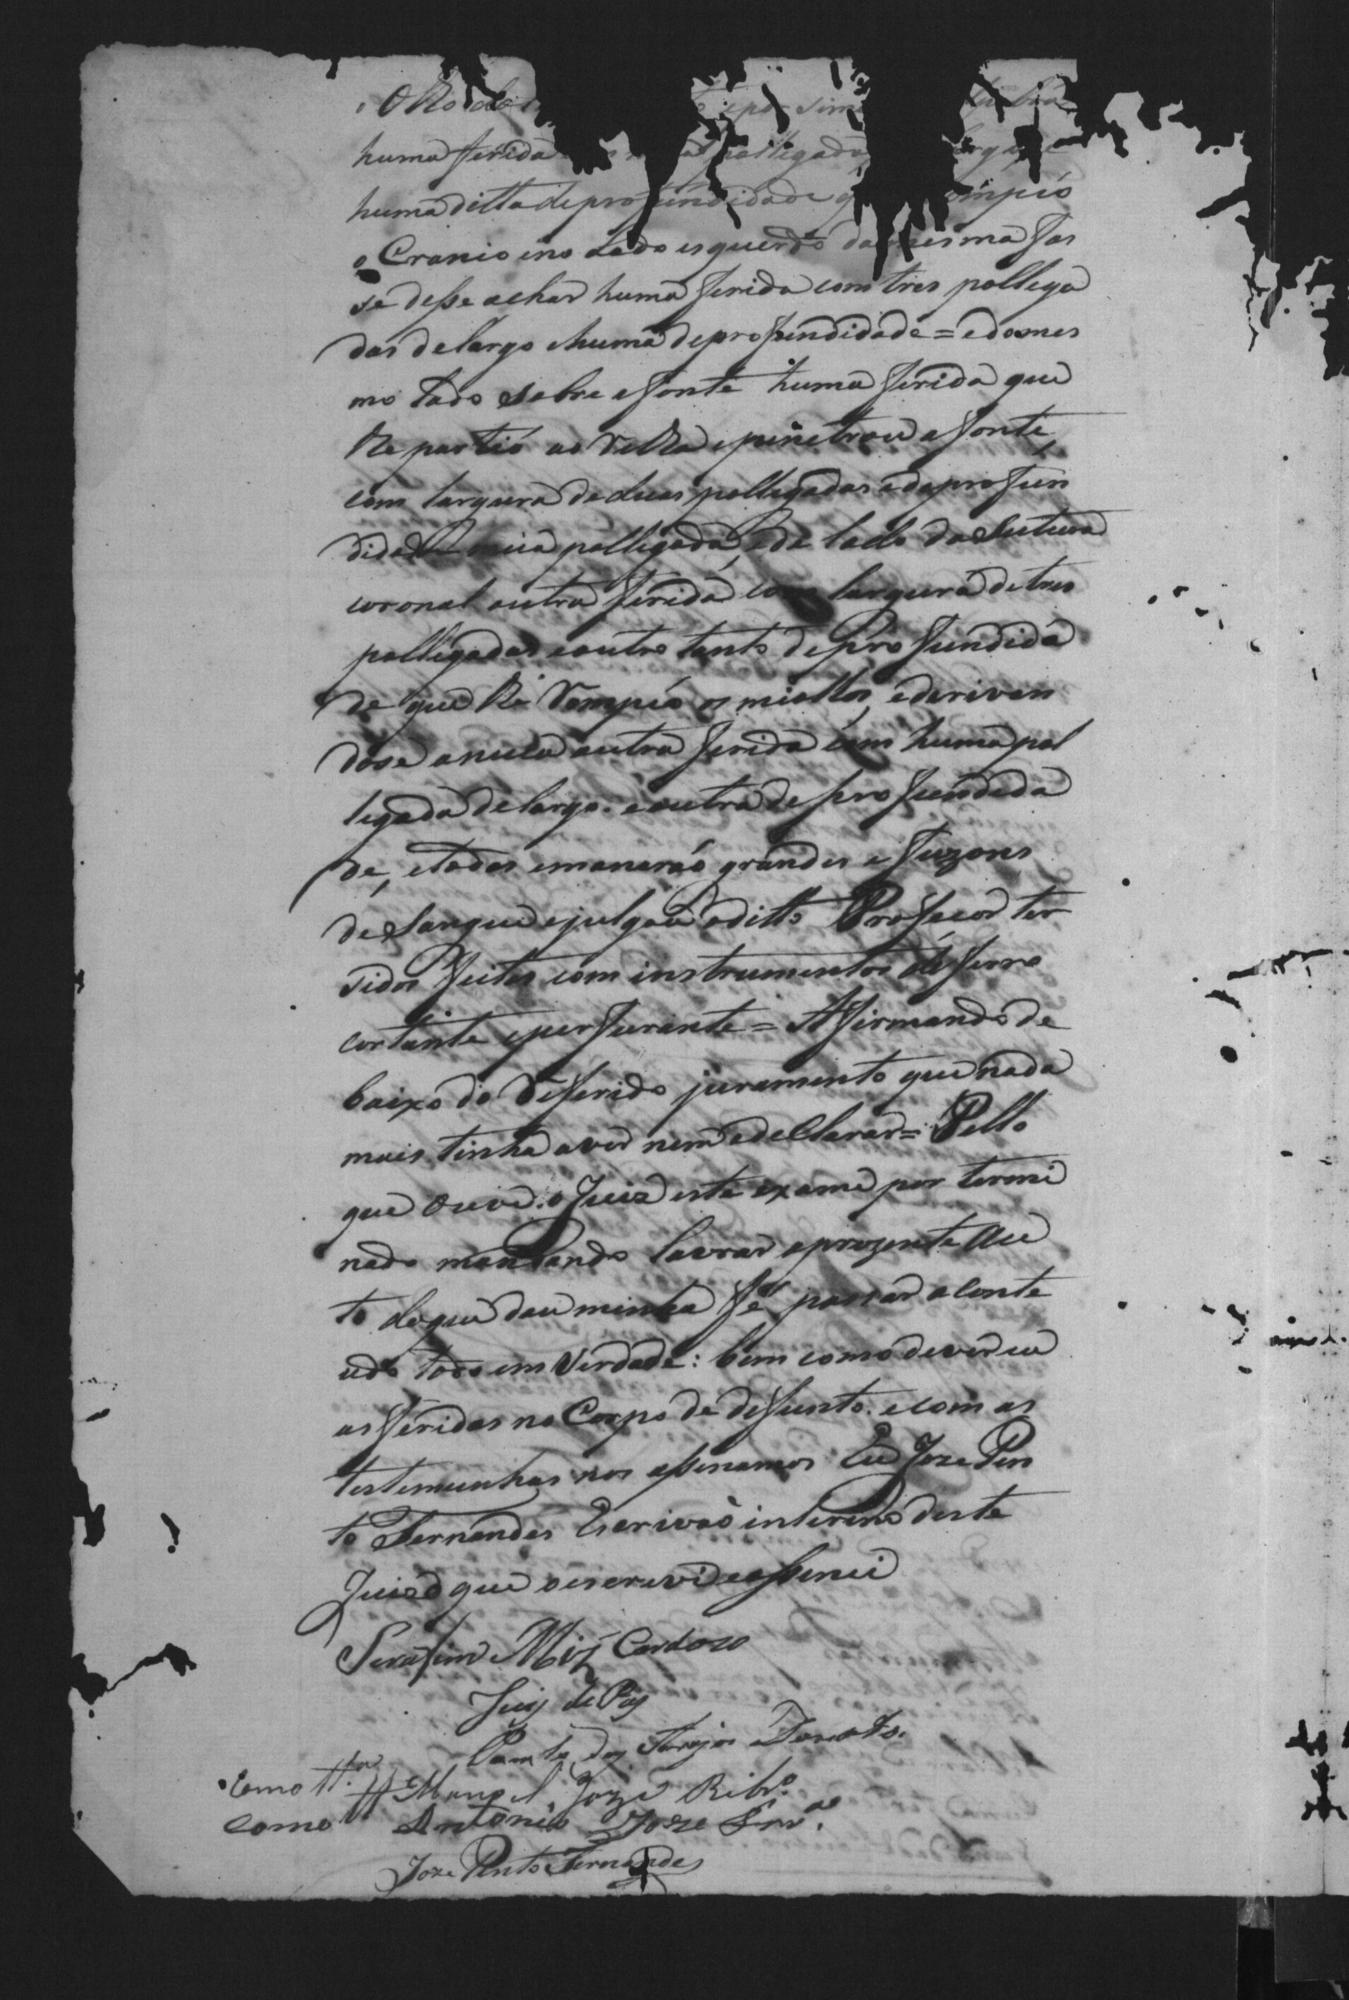 huma ferida pollegadas
huma ditta de profundidade
o Cranio eno Lado esquerdo da mesma fas
se desse achar huma ferida com tres pollega
das de largo ehuma de profundidade = edomes
mo Lado sobre afonte huma ferida que
Repartio aoRelha epinetrou afonte,
com largura de duas pollegadas edeprofun
didade meia pollegada, eda lado da Sutura
coronal outra ferida com largura de tres
pollegadas eoutro tanto de profundida
de que Rompeo os miollos, ederivan
dose anuca outra ferida com huma pol
legada de largo. eoutra de profundida
de, etodas emanarão grandes efuzons
de Sangue ejulgou oditto Professor ter
sidos feitos com instrumentos de ferro
cortante eperfurante = Afirmando de
baixo do deferido juramento que nada
mais tinha aver nem adeclarar = Pello
que ouve o Juiz este exame por termi
nado mandando lavrar aprezente Au
to doque dou minha fé passar aconte
udo todo em Verdade: bem como dever eu
as feridas no Corpo de defunto. ecom as
testemunhas nos assinamos Eu Joze Pin
to Fernandes Escrivão interino deste
Juizo que oescrevi eassinei
Serafim Miz Cardozo
Juiz de Paz
dos Donato.
Como tt.ª Manoel Joze Ribr.º
como tt Antonio Joze
Joze Pinto Fernandes